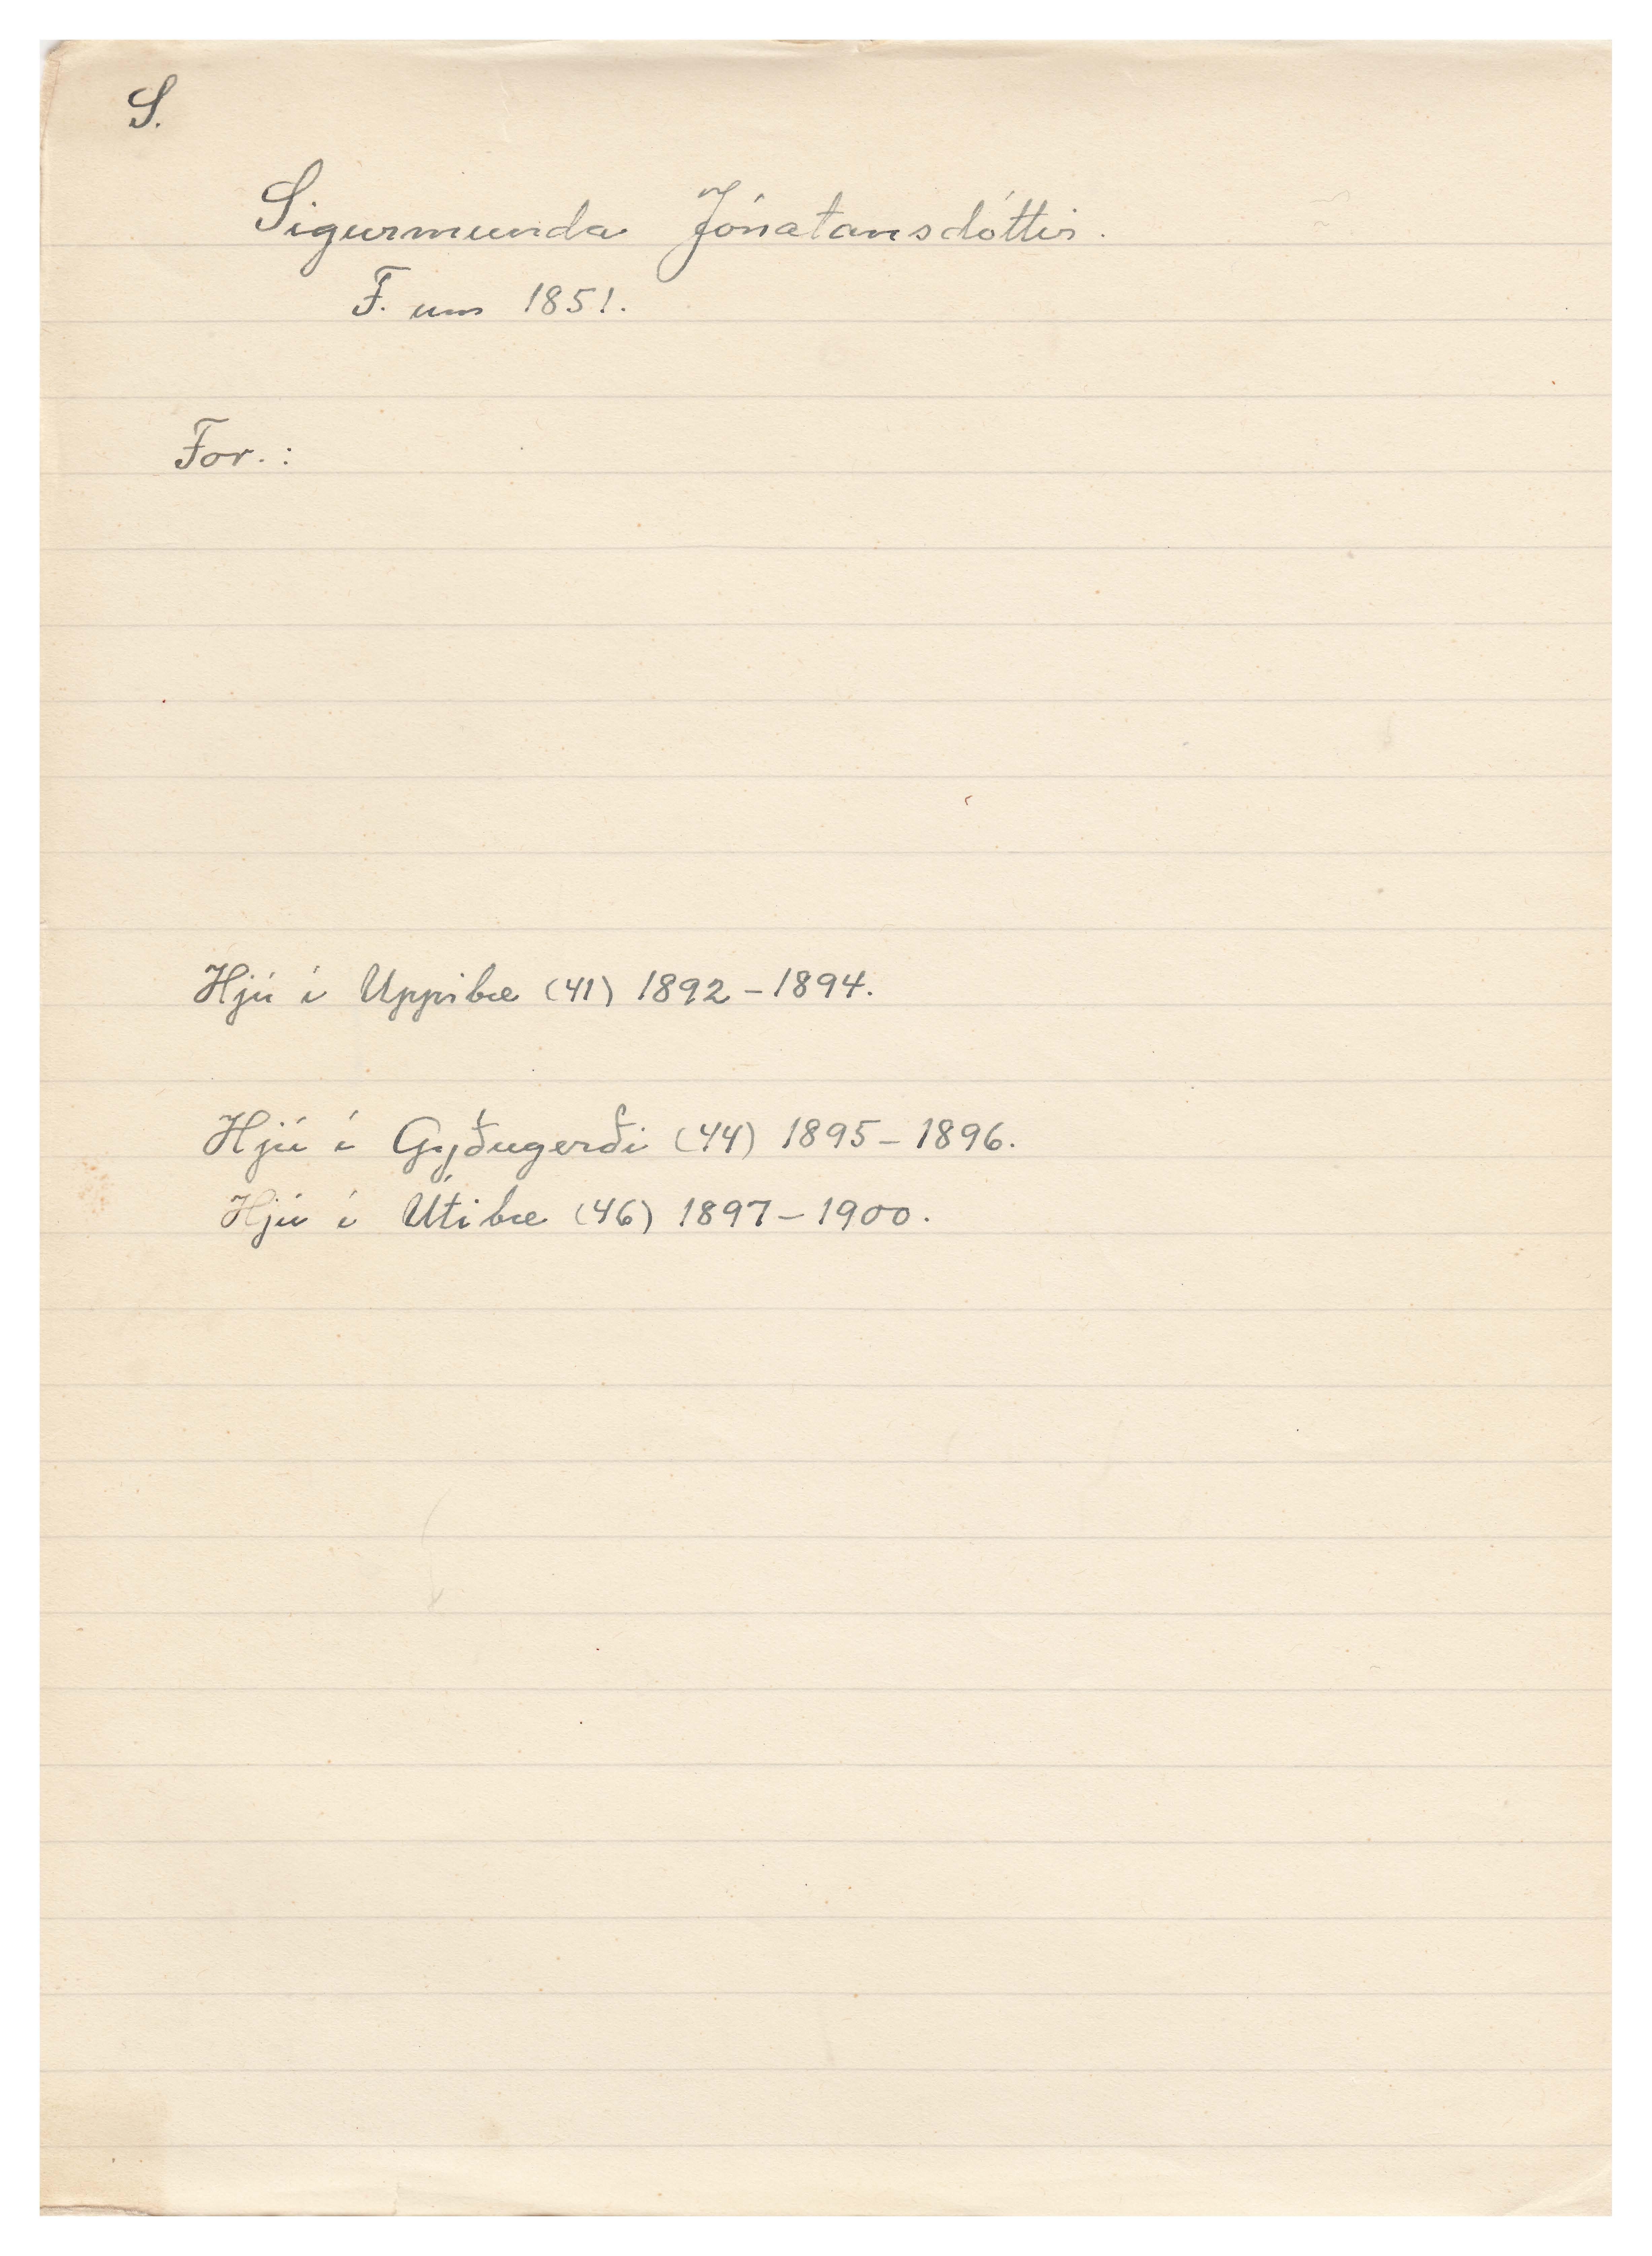 S.
Sigurmunda Jónatansdóttir.
F. um 1851.
For.:
Hjú í Uppibæ (41) 1892-1894.
Hjú í Gyðugerði (44) 1895-1896.
Hjú í Útibæ (46) 1897-1900.